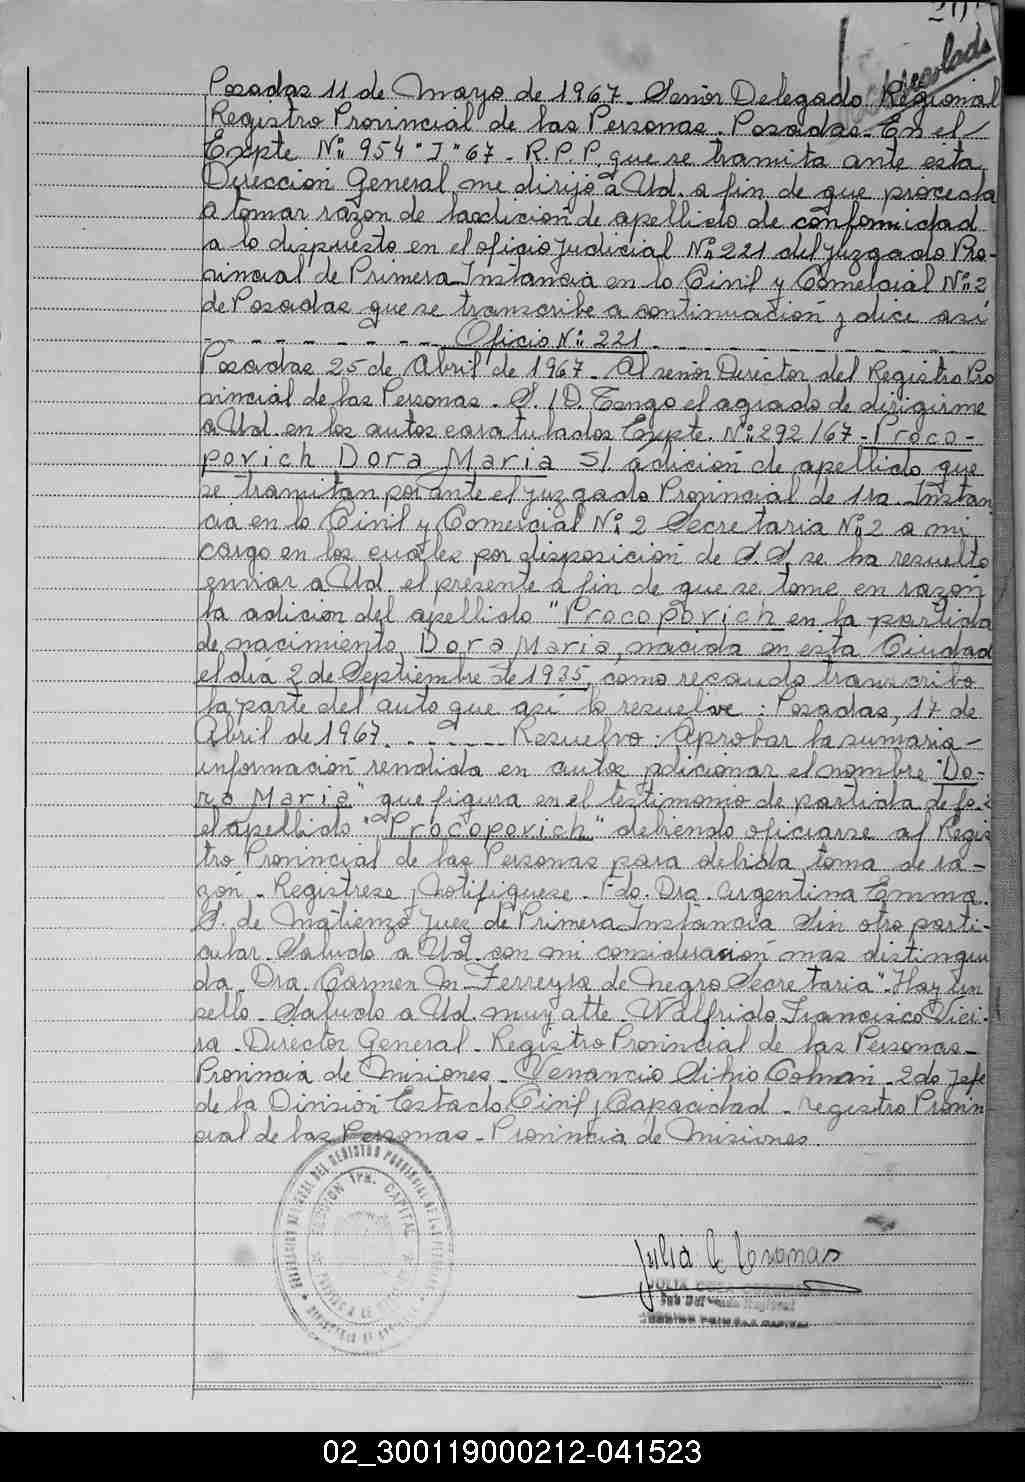 Posadas 11 de Mayo de 1967. Señor Delegado Regional
Registro Provincial de las Personas. Posadas. En el
Expte Nº 954 "J" 67 - R.P.P. que se tramita ante esta
Dirección General me dirijo a Ud. a fin de que proceda
a tomar razón de la adición de apellido de conformidad
a lo dispuesto en el oficio judicial Nº 221 del Juzgado Pro-
vincial de Primera Instancia en lo Civil y Comercial Nº 2
de Posadas que se transcribe a continuación y dice así
Oficio Nº 221
Posadas 25 de Abril de 1967. Al señor Director del Registro Pro
vincial de las Personas. S. / D. Tengo el agrado de dirigirme
a Ud. en los autos caratulados Expte. Nº 292/67 - Proco-
povich Dora Maria S/ adición de apellido que
se tramitan por ante el Juzgado Provincial de 1ra Instan
cia en lo Civil y Comercial Nº 2 Secretaria Nº 2 a mi
cargo en los cuales por disposición de S.S. se ha resuelto
enviar a Ud. el presente a fin de que se tome en razón
la adición del apellido "Procopovich en la partida
de nacimiento Dora Maria, nacida en esta Ciudad
el día 2 de Septiembre de 1935, como recaudo transcribo
la parte del auto que así lo resuelve: Posadas, 17 de
Abril de 1967. - - - - - Resuelvo: Aprobar la sumaria -
información rendida en autos adicionar el nombre "Do-
ra Maria" que figura en el testimonio de partida de fs 2
el apellido "Procopovich" debiendo oficiarse al Regis
tro Provincial de las Personas para debida toma de ra-
zón - Registrese y Notifiquese. Fdo. Dra. Argentina Emma
S. de Matienzo Juez de Primera Instancia Sin otro parti-
cular Saludo a Ud. con mi consideración mas distingui
da. Dra. Carmen M. Ferreyra de Negro Secretaria" Hay un
sello. Saludo a Ud. muy atte. Walfrido Francisco Viei-
ra - Director General - Registro Provincial de las Personas -
Provincia de Misiones - Venancio Silvio Colman - 2do Jefe
de la División Estado Civil y Capacidad - Registro Provin
cial de las Personas - Provincia de Misiones
SECCION 1RA. CAPITAL
Julia C
02_300119000212-041523